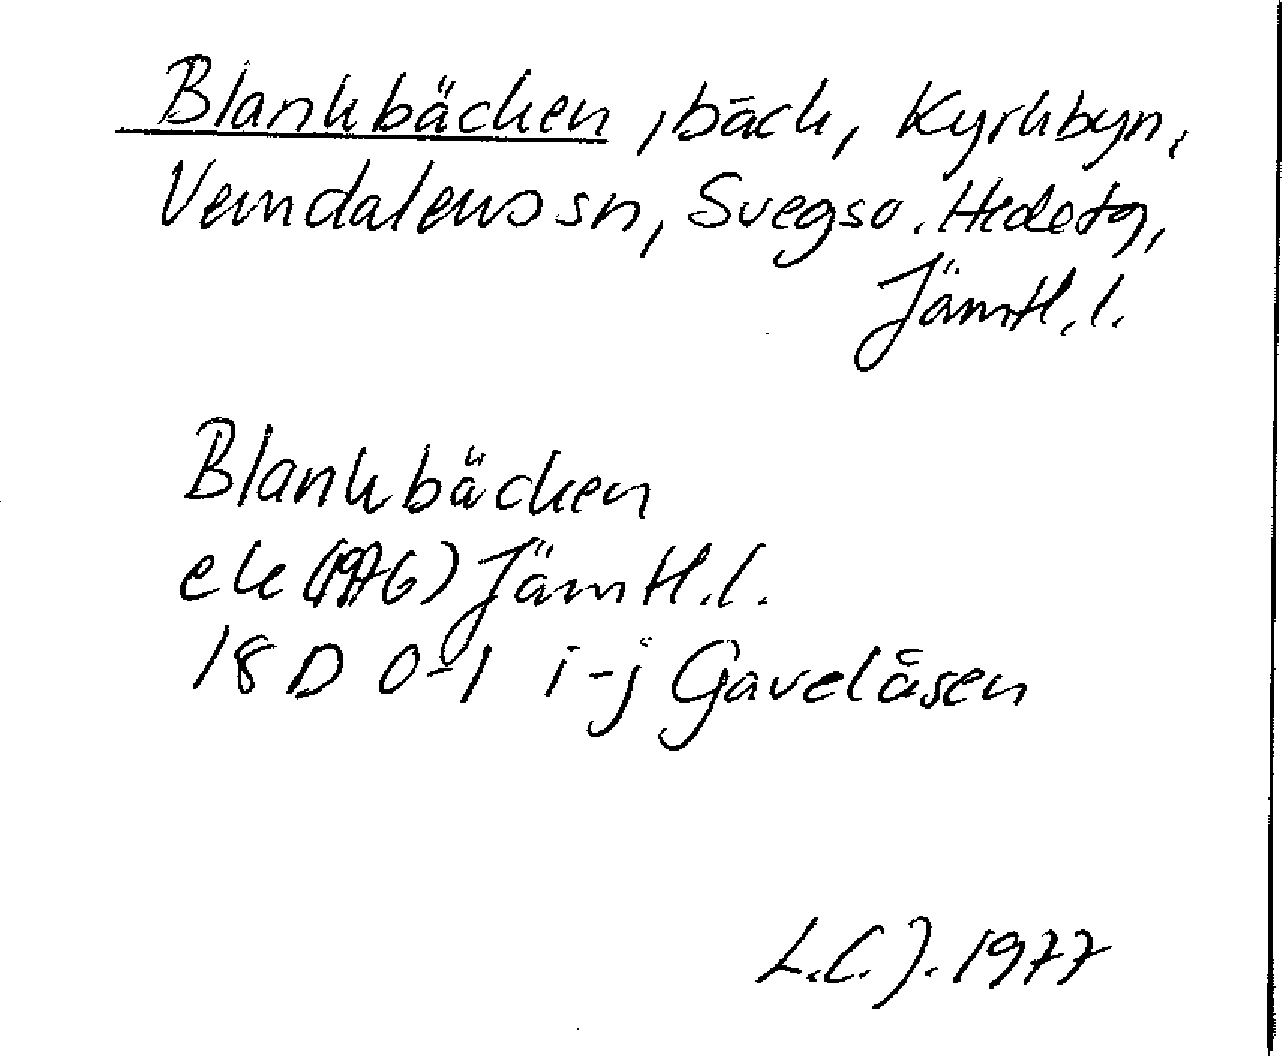 Blankbäcken, bäck, Kyrkbyn,
Vemdalens sn, Svegs o. Hede tg,
Jämtl. l.
Blankbäcken
ek (1976) Jämtl. l.
18 D 0-1 i-j Gavelåsen
L.C.J. 1977